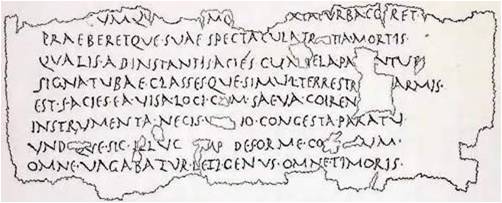 UMQU MO XTATURBACO RET
PRAEBERETQUE SUAE SPECTACULATR TIAMORTIS·
QUALIS·ADINSTANTISACIES CU ELAPA NTUR
SIGNATUBAE·CLASSESQUE·SIMULTERRESTR ARMIS·
EST·SACIES·EAVISALOCI·C M·SAEVA COIREN
INSTRUMENTA NECIS· IO·CONGESTA PARATU
UND E·SIC·ILLUC MP DEFORME·CO UM·
OMNE·VAGABATUR·LETI GENUS·OMNETIMORIS·